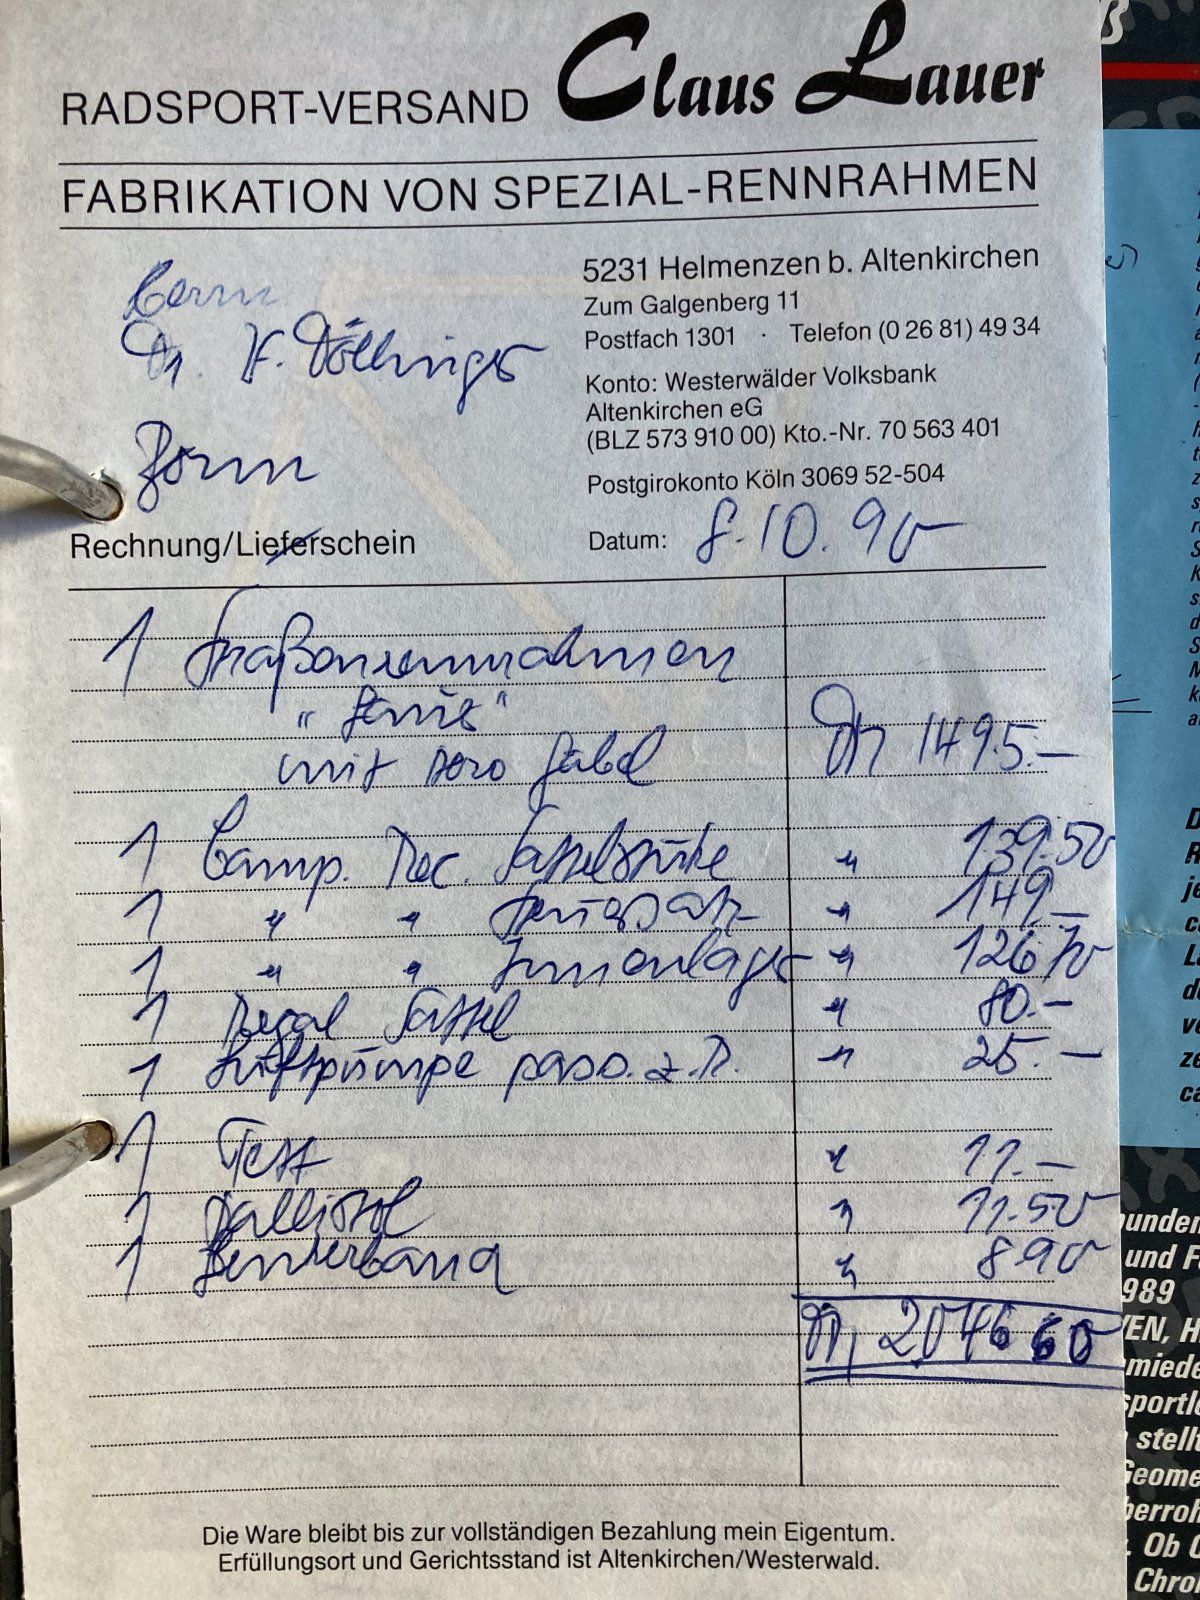 RADSPORT-VERSAND Claus Lauer
FABRIKATION VON SPEZIAL-RENNRAHMEN
5231 Helmenzen b. Altenkirchen
Zum Galgenberg 11
Postfach 1301 · Telefon (0 26 81) 49 34
Konto: Westerwälder Volksbank
Altenkirchen eG
(BLZ 573 910 00) Kto.-Nr. 70 563 401
Postgirokonto Köln 3069 52-504
Herrn
Dr. Döllinger
Bonn
Rechnung/Lieferschein Datum: 8.10.90
1 Straßenrennrahmen
mit Aero Gabel DM 1495.-
1 Camp. Rec. Sattelstütze " 139.50
1 " " Steuersatz " 149.-
1 " " Innenlager " 126.70
1 Regal Sattel " 80.-
1 Luftpumpe pass. z. R. " 25.-
1 " 11.-
1 Ballistol " 11.50
1 Lenkerband " 8.90
DM 2046 60
Die Ware bleibt bis zur vollständigen Bezahlung mein Eigentum.
Erfüllungsort und Gerichtsstand ist Altenkirchen/Westerwald.
und
989
miede
stellt
Ob
Chro